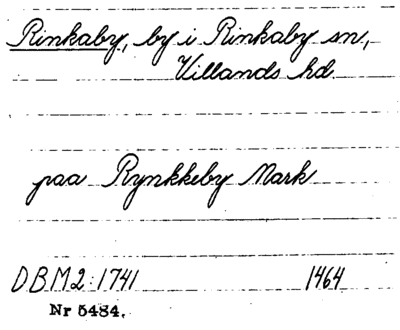 Rinkaby, by i Rinkaby sn,
Villands hd.
paa Rynkkeby Mark
DBM2:1741 1464
Nr 5484.